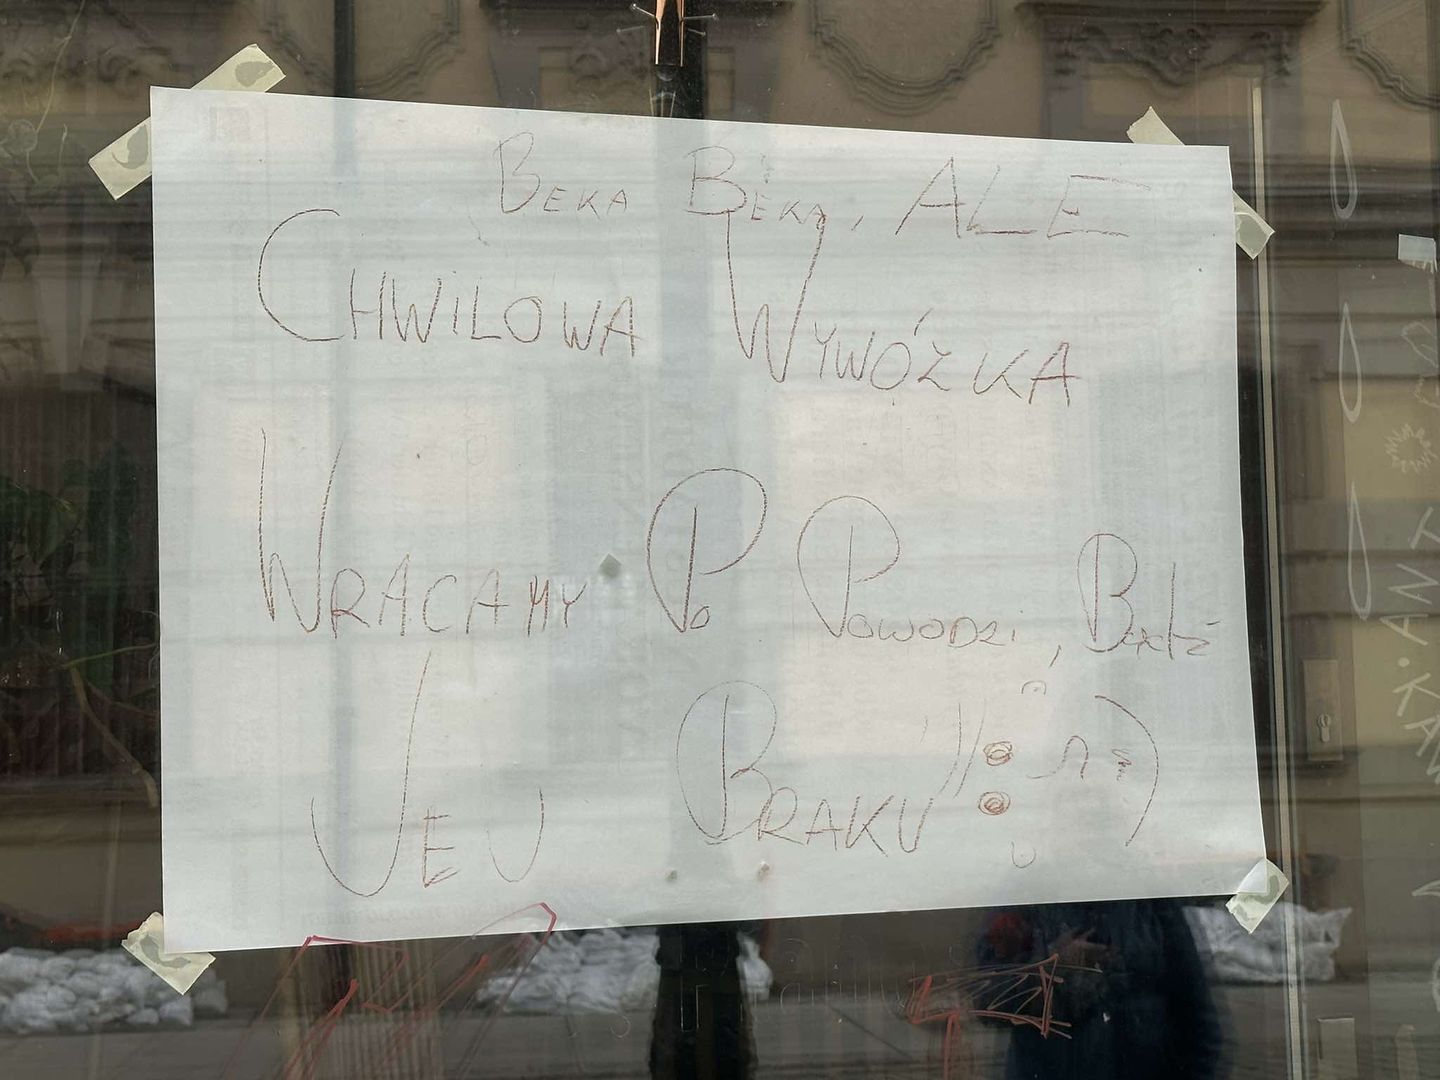 BEKA BEKA, ALE
CHWILOWA WYWÓZKA
WRACAMY PO POWODZI, BĄDŹ
JEJ BRAKU :)